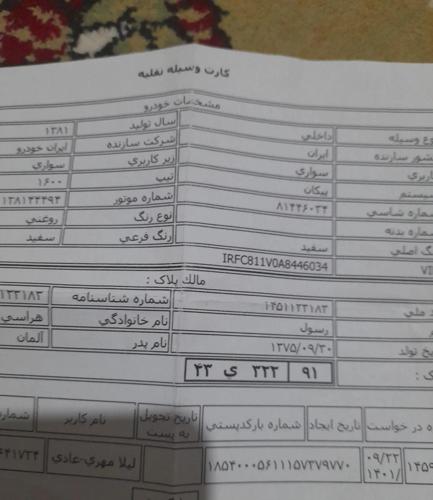 کارت وسیله نقلیه
مشخصات خودرو
وع وسیله داخلي سال تولید ۱۳۸۱
شور سازنده ایران شرکت سازنده ایران خودرو
اربري سواري زیر کاربري سواري
یستم پیکان تیپ ۱۶۰۰
ماره شاسي ۸۱۴۴۶۰۳۴ شماره موتور
ماره بدنه نوع رنگ روغني
گ اصلي سفید رنگ فرعي سفید
VI IRFC811V0A8446034
مالك پلاک :
ملي ۱۴۵۱۱۲۳۱۸۳ شماره شناسنامه ۱۲۳۱۸۳
رسول نام خانوادگي هراسي
خ تولد ۱۳۷۵/۰۹/۳۰ نام پدر آلمان
ک : ۹۱ ۲۲۲ ي ۴۳
ه در خواست تاریخ ایجاد شماره بارکدپستي تاریخ تحویل به پست نام کاربر شمار
۱۴۵۹ ۰۹/۲۲ ۱۴۰۱/ ۱۸۵۴۰۰۰۵۶۱۱۱۵۷۳۷۹۷۷۰ لیلا مهري-عادي ۴۱۷۲۴